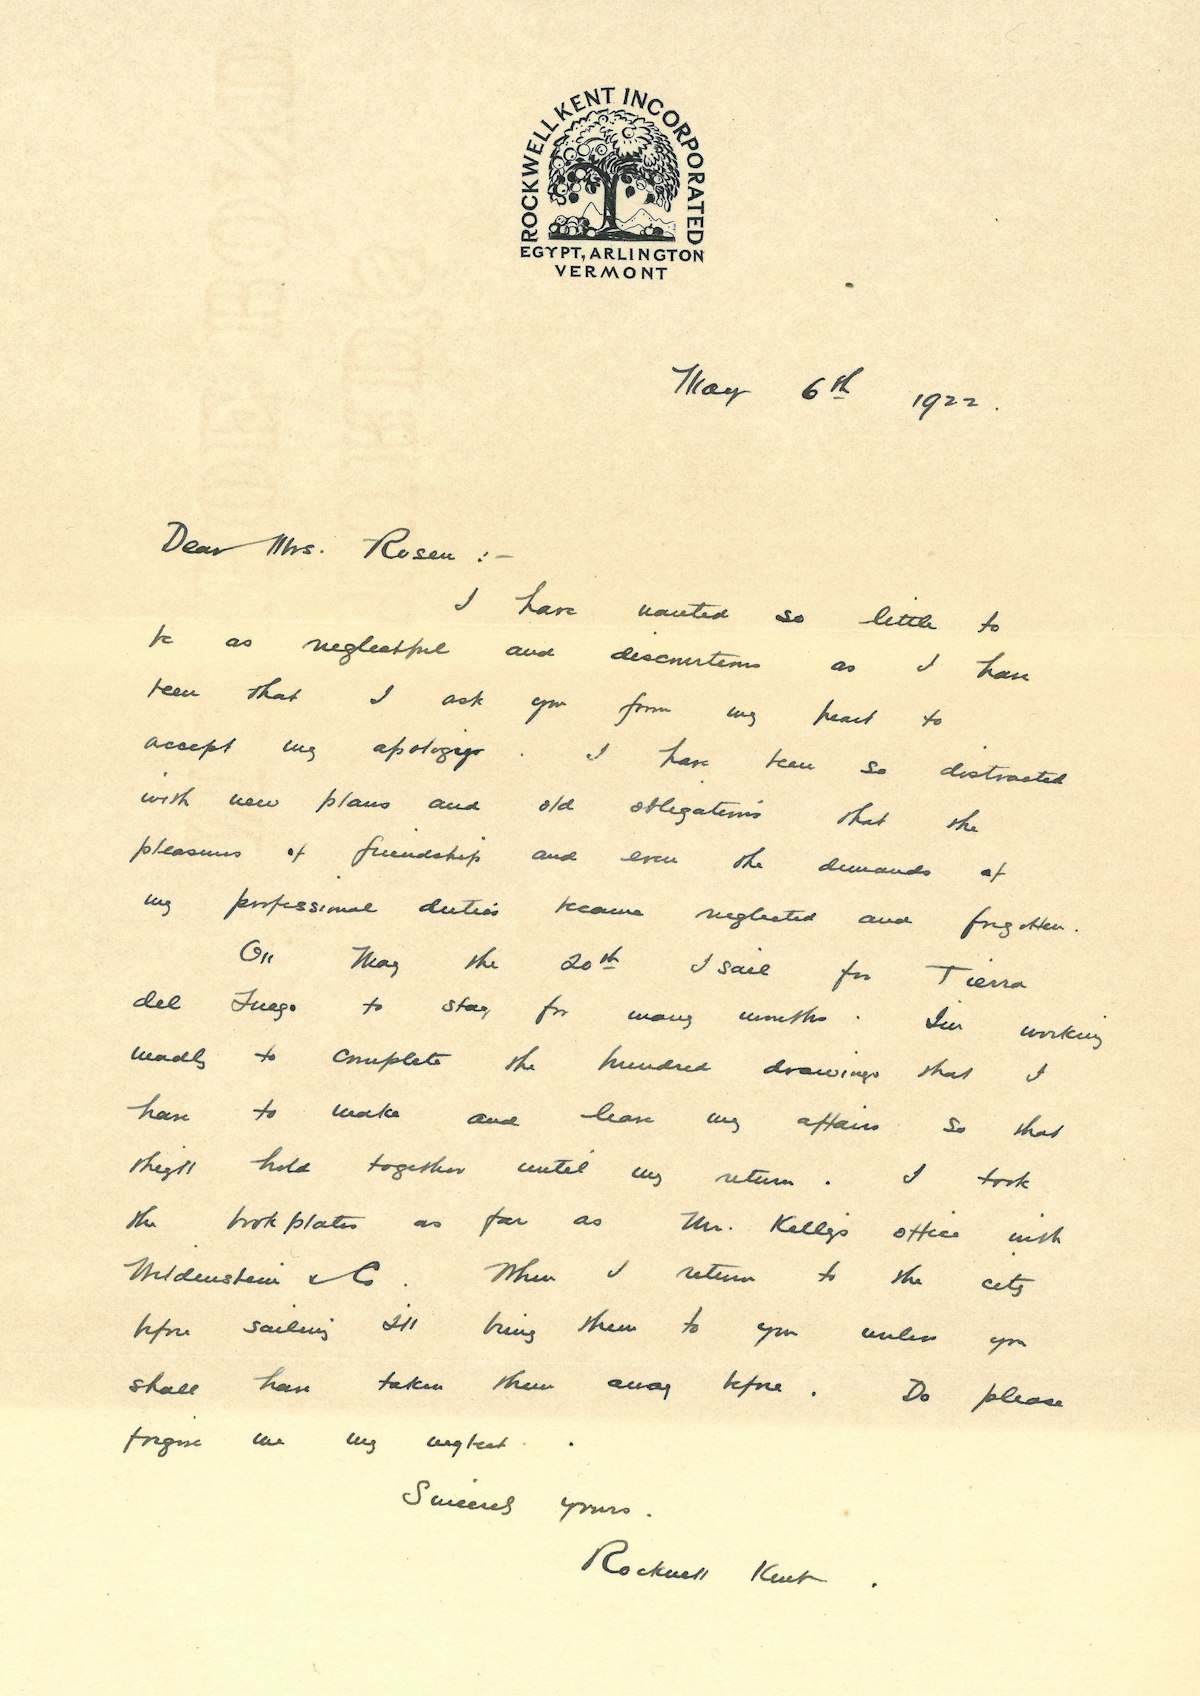 ROCKWELL KENT INCORPORATED
EGYPT, ARLINGTON
VERMONT
May 6th 1922.
Dear Mrs. Rosen :-
I have wanted so little to
be as neglectful and discourteous as I have
been that I ask you from my heart to
accept my apologies. I have been so distracted
with new plans and old obligations that the
pleasures of friendship and even the demands of
my professional duties became neglected and forgotten.
On May the 20th I sail for Tierra
del Fuego to stay for many months. I'm working
madly to complete the hundred drawings that I
have to make and leave my affairs so that
they'll hold together until my return. I took
the bookplates as far as Mr. Kelly's office with
Wildenstein & Co. When I return to the city
before sailing I'll bring them to you unless you
shall have taken them away before. Do please
forgive me my neglect.
Sincerely yours.
Rockwell Kent.